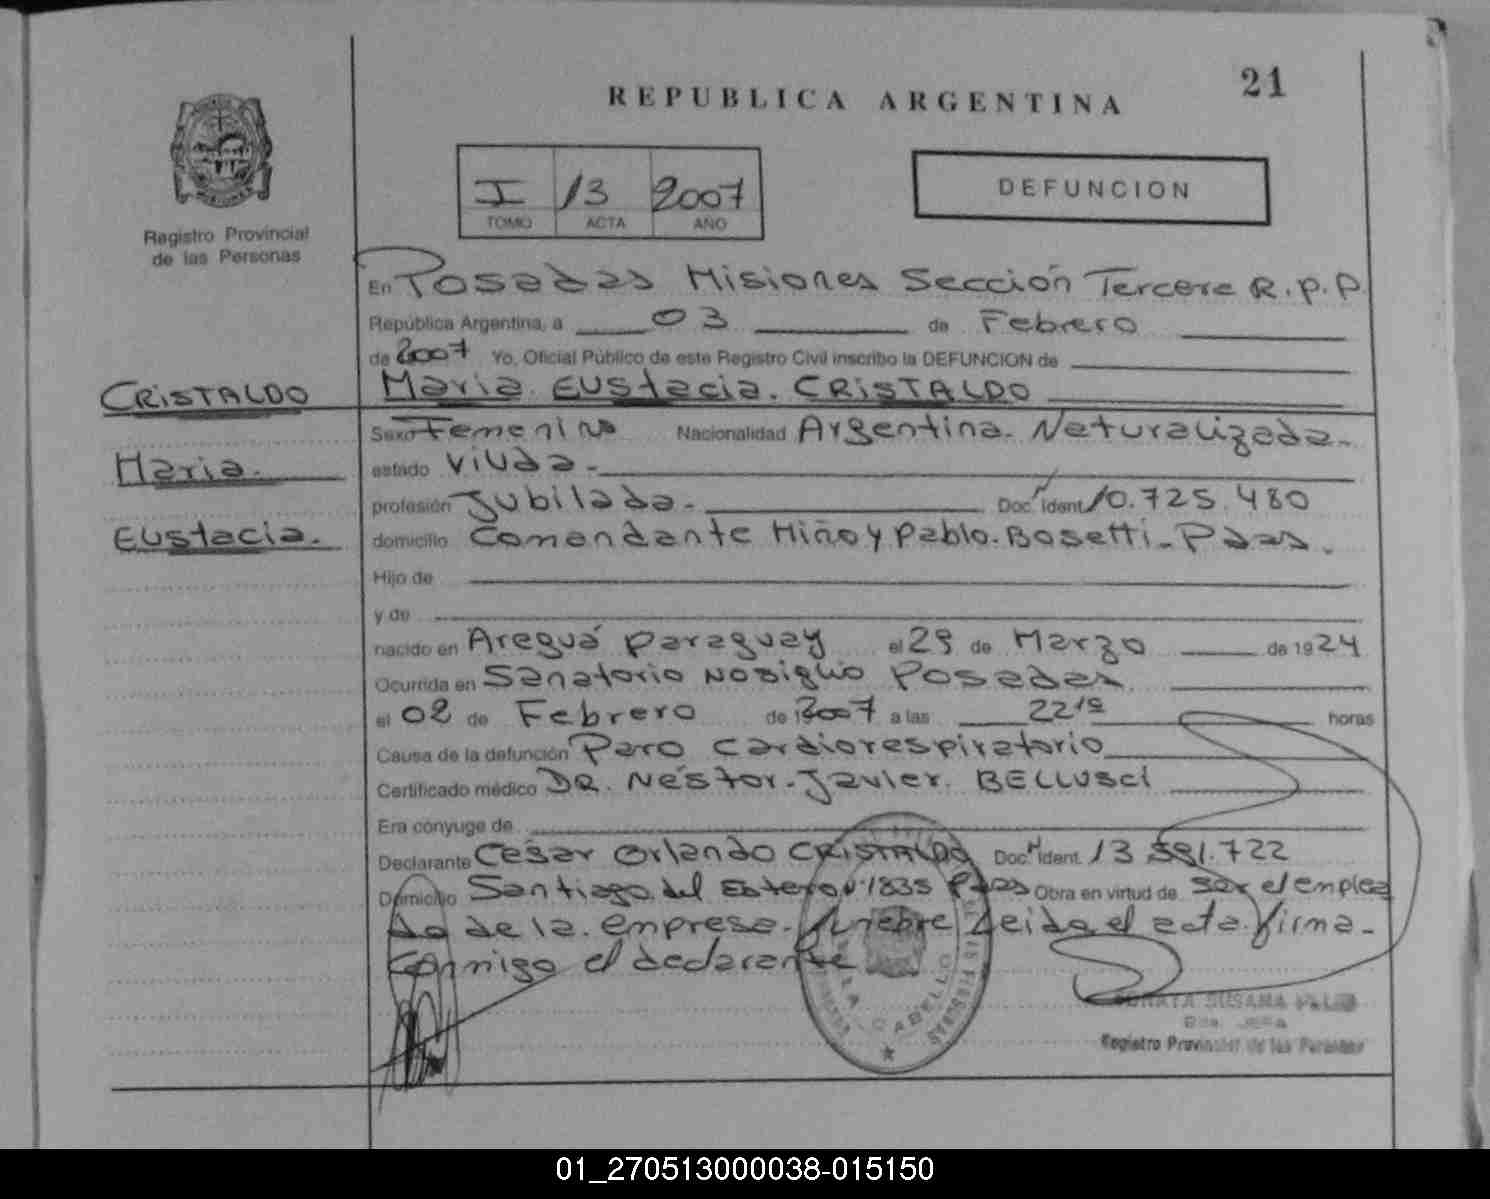 21
REPUBLICA ARGENTINA
I 13 2007
TOMO ACTA AÑO
DEFUNCION
Registro Provincial
de las Personas
En Posadas Misiones Sección Tercera R.P.P.
República Argentina, a 03 de Febrero
de 2007 Yo, Oficial Público de este Registro Civil inscribo la DEFUNCION de
CRISTALDO
Maria. EUStacia. CRISTALDO
Sexo Femenino Nacionalidad Argentina. Naturalizada-
Maria.
estado Viuda-
profesión Jubilada- Doc. Ident. 10.725.480
EUStacia.
domicilio Comandante Miño y Pablo. Bosetti- Pdas.
Hijo de
y de
nacido en Areguá Paraguay el 29 de Marzo de 1924
Ocurrida en Sanatorio Nosiglio Posadas
el 02 de Febrero de 2007 a las 22 horas
Causa de la defunción Paro Cardiorespiratorio
Certificado médico DR. Néstor. Javier. BELLUSCI
Era cónyuge de
Declarante César Orlando CRISTALDO Doc. Ident. 13 591.722
Domicilio Santiago del Estero Nº 1835 Pdas Obra en virtud de ser el emplea
do de la. empresa. fúnebre Leida el acta. firma-
Conmigo el declarante
SUSANA
Registro Provincial de las Personas
CABELLO
01_270513000038-015150